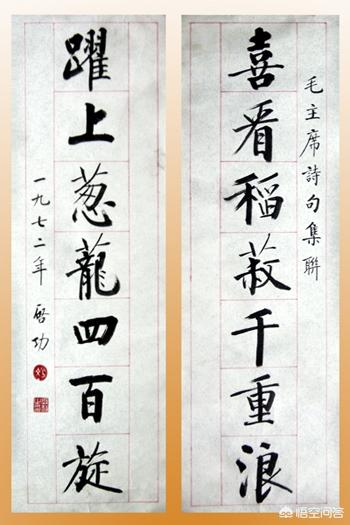 毛主席詩句集聯
喜看稻菽千重浪
躍上葱蘢四百旋
一九七二年 啓功
悟空问答